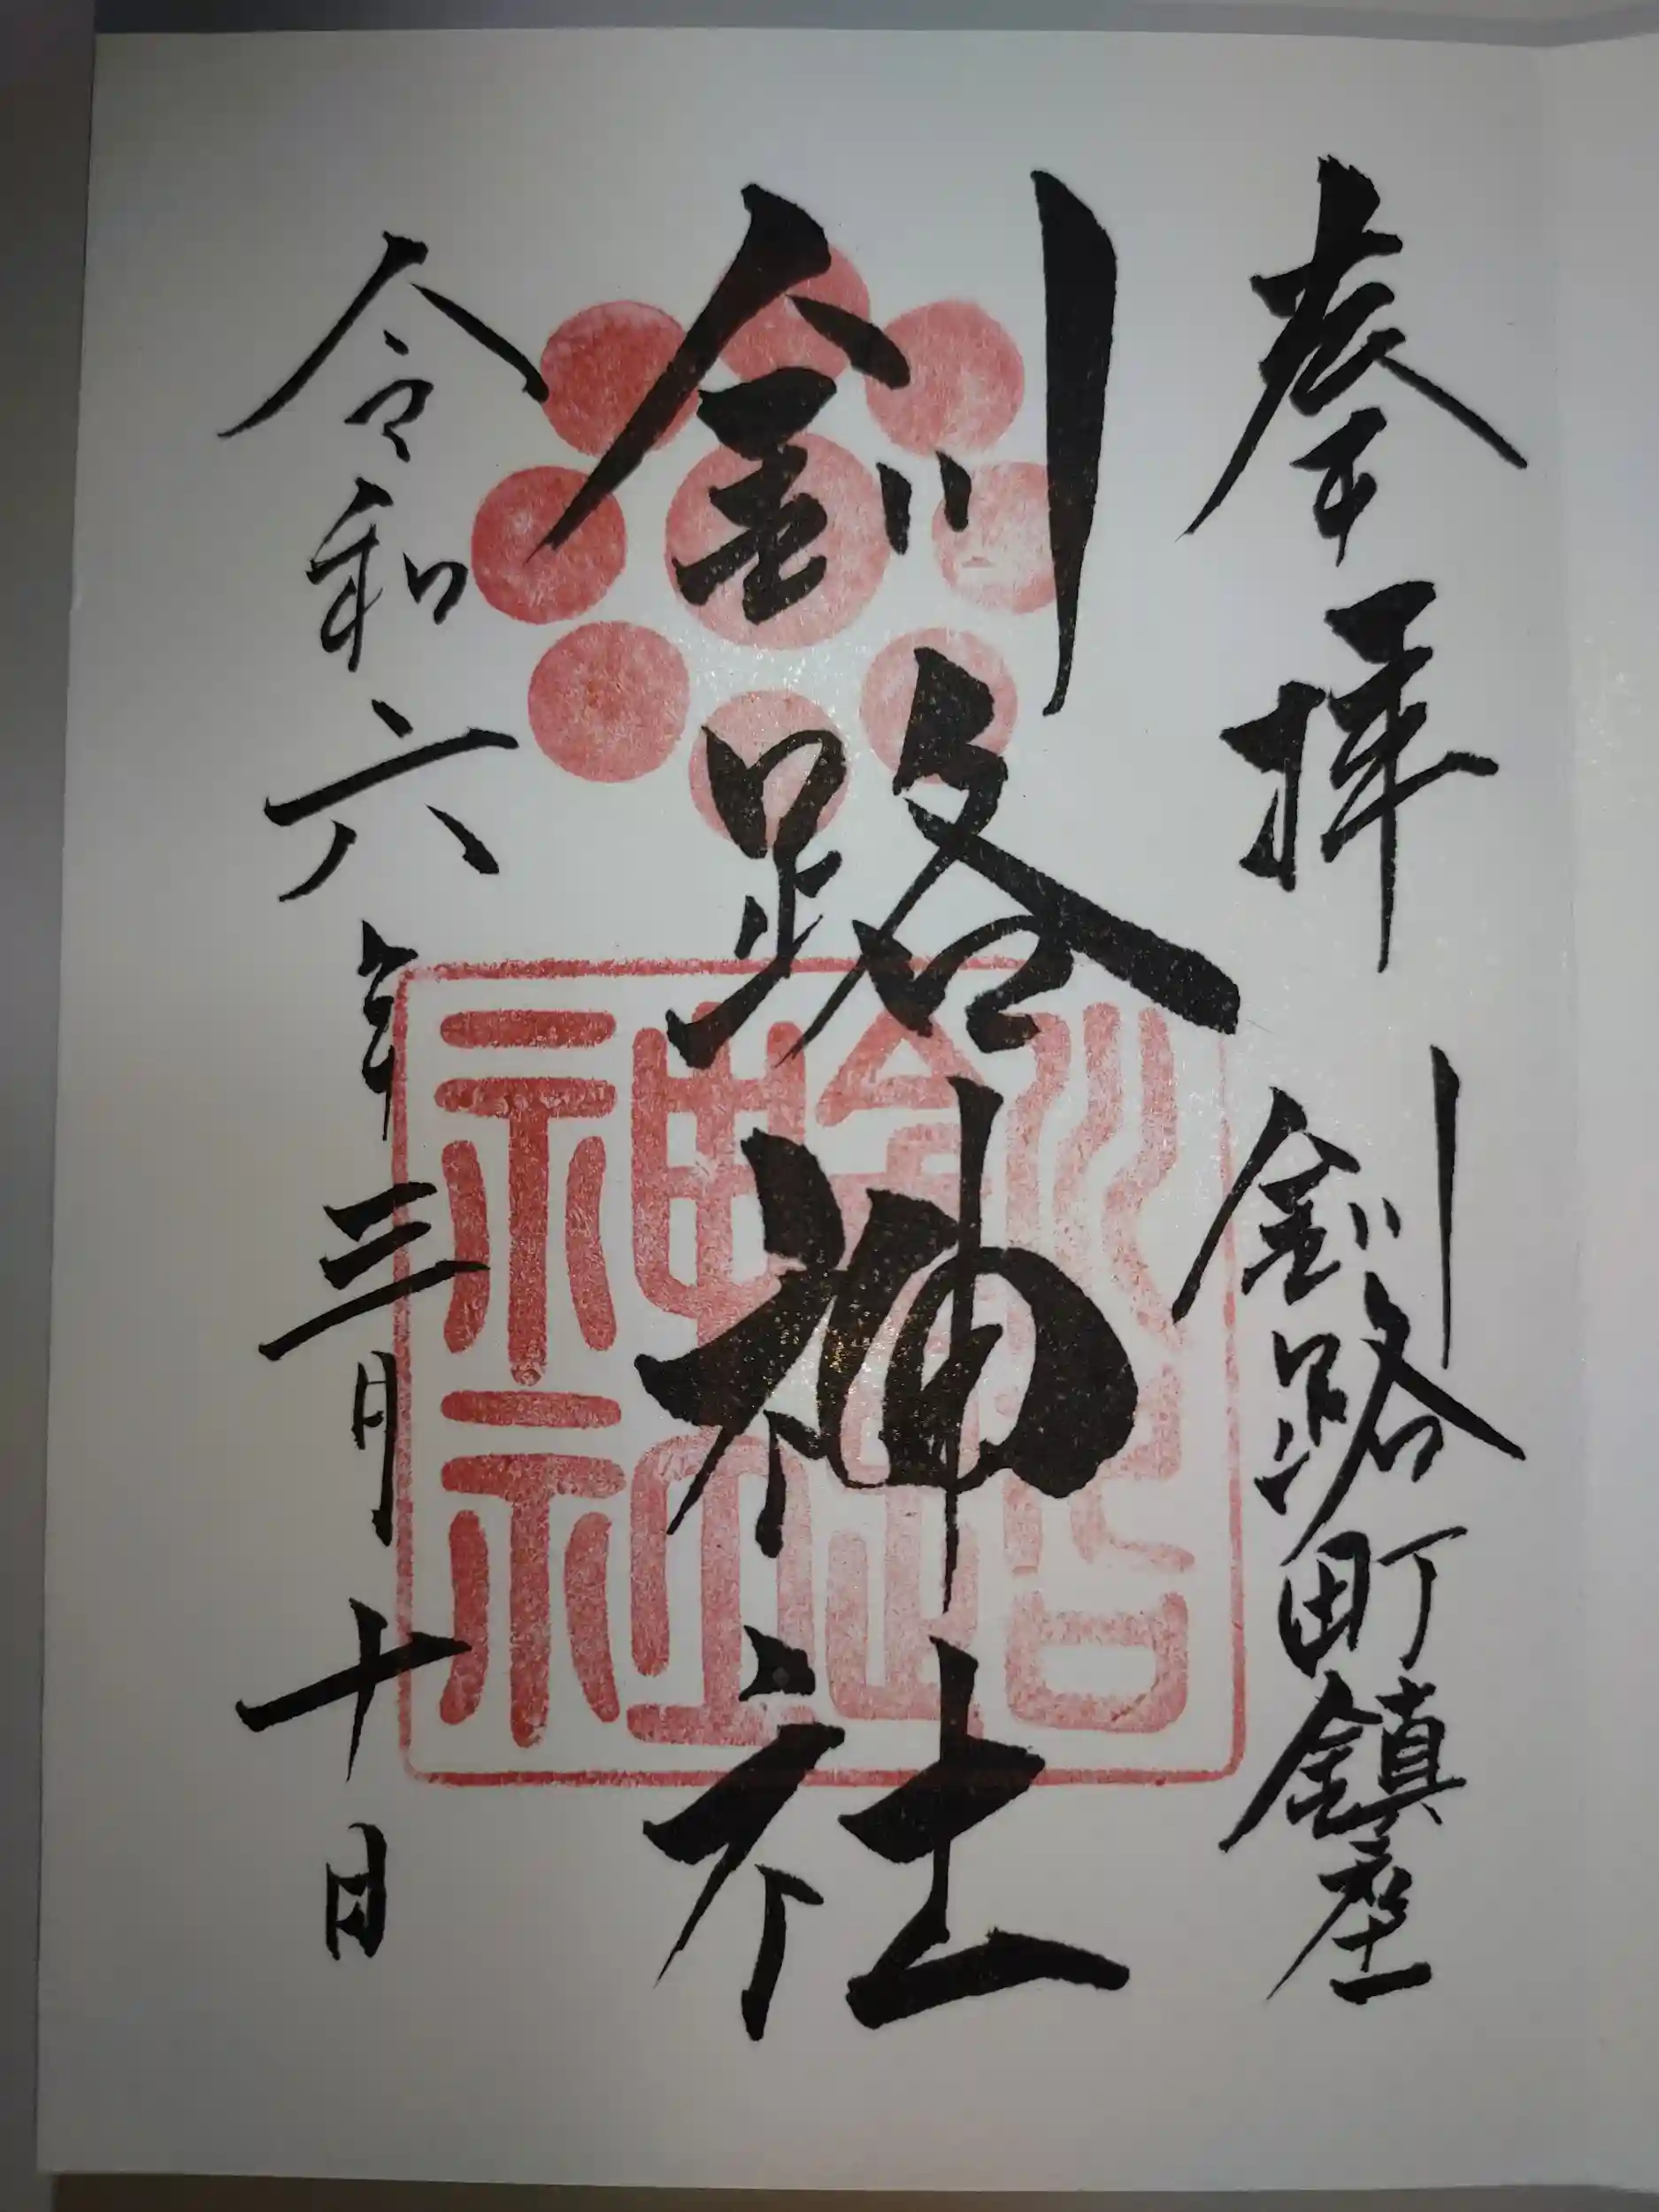 奉拝　釧路町鎮座
釧路神社
令和六年三月十日
釧路神社